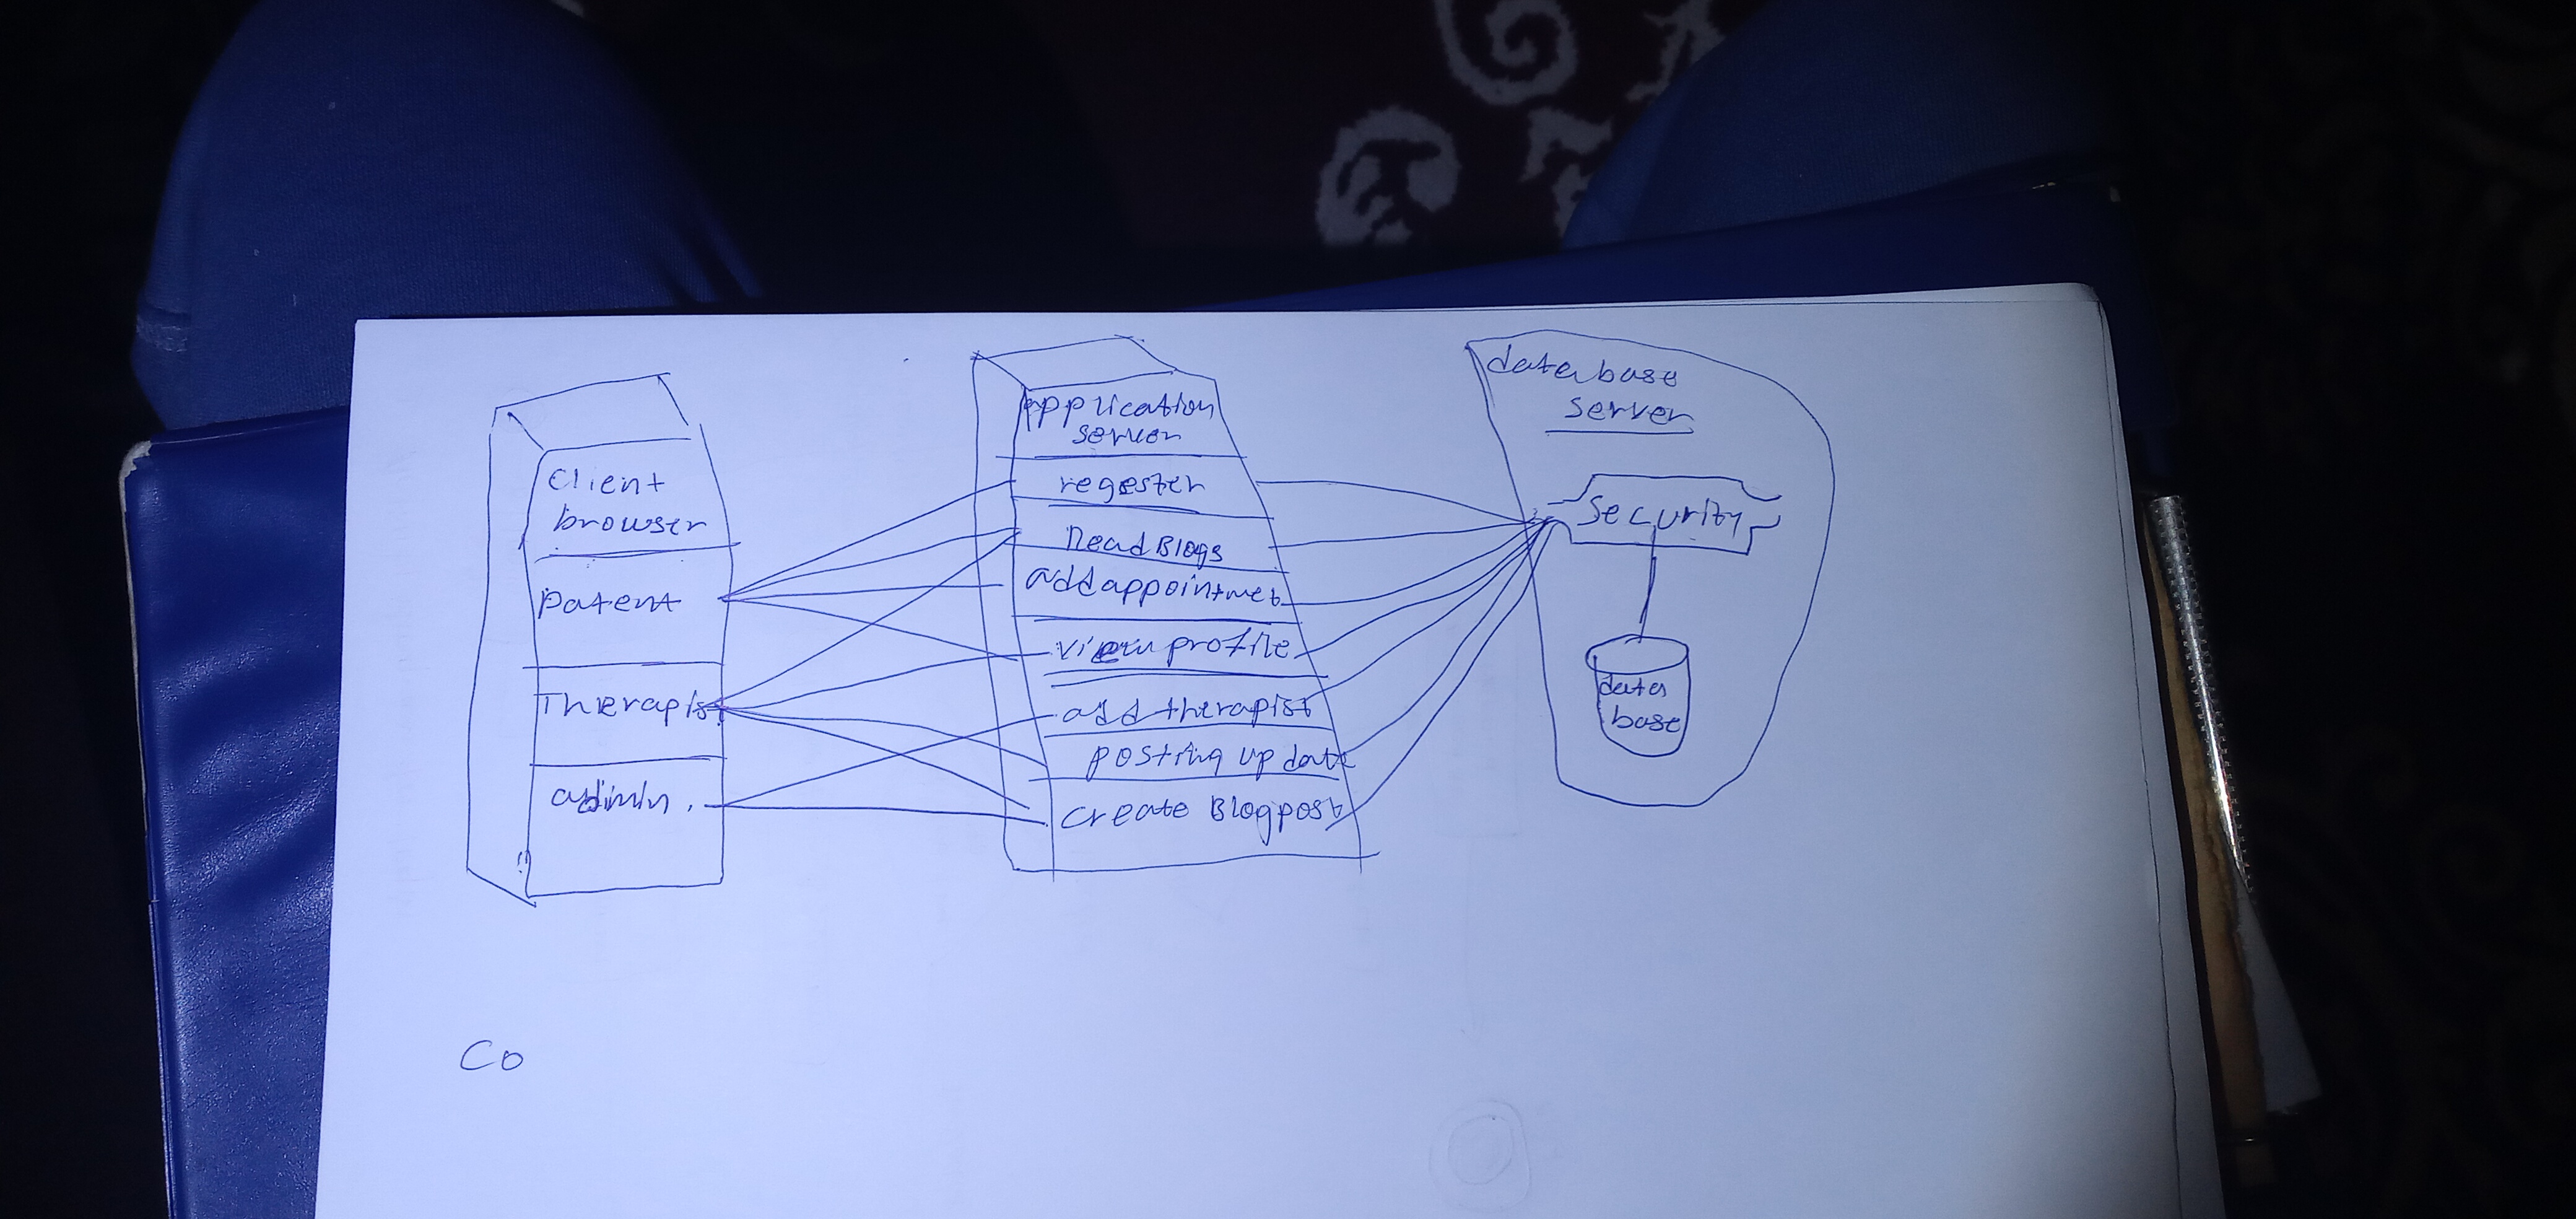 Client
browser
patent
Therapist
admin.
Application
server
regester
Read Blogs
add appointmet
view profile
add therapist
posting update
create Blog post
database
server
Security
data
base
Co